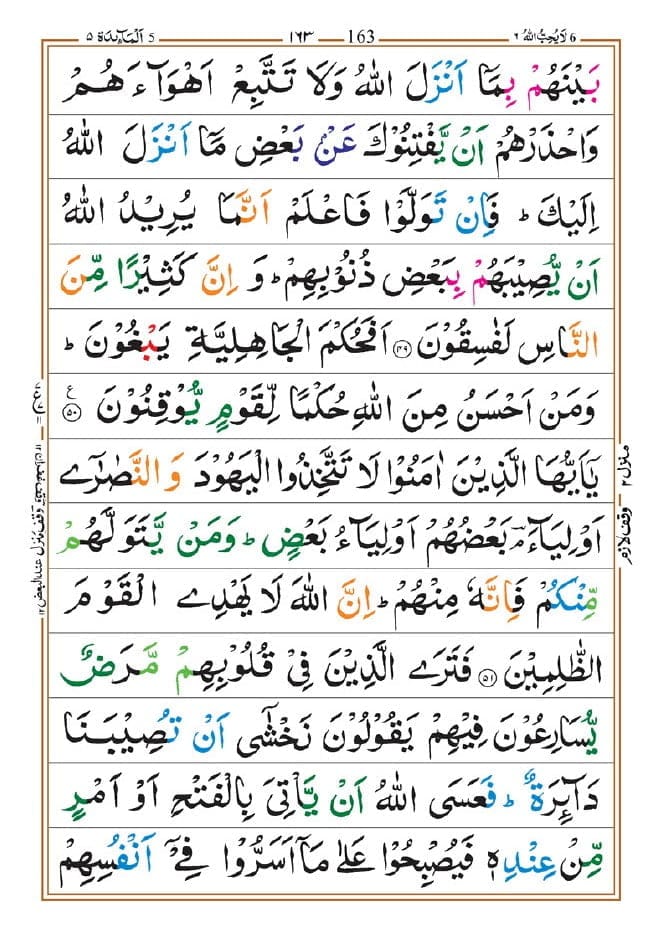 6 لَا يُحِبُّ اللّٰهُ ٦
163 ١٦٣
5 اَلْمَآىِٕدَة ٥
بَيْنَهُمْ بِمَاۤ اَنْزَلَ اللّٰهُ وَلَا تَتَّبِعْ اَهْوَآءَهُمْ
وَاحْذَرْهُمْ اَنْ يَّفْتِنُوْكَ عَنْۢ بَعْضِ مَاۤ اَنْزَلَ اللّٰهُ
اِلَيْكَ ؕ فَاِنْ تَوَلَّوْا فَاعْلَمْ اَنَّمَا يُرِيْدُ اللّٰهُ
اَنْ يُّصِيْبَهُمْ بِبَعْضِ ذُنُوْبِهِمْ ؕ وَ اِنَّ كَثِيْرًا مِّنَ
النَّاسِ لَفٰسِقُوْنَ ۝٤٩ اَفَحُكْمَ الْجَاهِلِيَّةِ يَبْغُوْنَ ؕ
وَمَنْ اَحْسَنُ مِنَ اللّٰهِ حُكْمًا لِّقَوْمٍ يُّوْقِنُوْنَ ۝٥٠ ع
يٰۤاَيُّهَا الَّذِيْنَ اٰمَنُوْا لَا تَتَّخِذُوا الْيَهُوْدَ وَ النَّصٰرٰۤى
اَوْلِيَآءَ ۘ بَعْضُهُمْ اَوْلِيَآءُ بَعْضٍ ؕ وَمَنْ يَّتَوَلَّهُمْ
مِّنْكُمْ فَاِنَّهٗ مِنْهُمْ ؕ اِنَّ اللّٰهَ لَا يَهْدِى الْقَوْمَ
الظّٰلِمِيْنَ ۝٥١ فَتَرَى الَّذِيْنَ فِىْ قُلُوْبِهِمْ مَّرَضٌ
يُّسَارِعُوْنَ فِيْهِمْ يَقُوْلُوْنَ نَخْشٰۤى اَنْ تُصِيْبَنَا
دَآىِٕرَةٌ ؕ فَعَسَى اللّٰهُ اَنْ يَّاْتِىَ بِالْفَتْحِ اَوْ اَمْرٍ
مِّنْ عِنْدِهٖ فَيُصْبِحُوْا عَلٰى مَاۤ اَسَرُّوْا فِىْۤ اَنْفُسِهِمْ
منزل ٢
وقف لازم